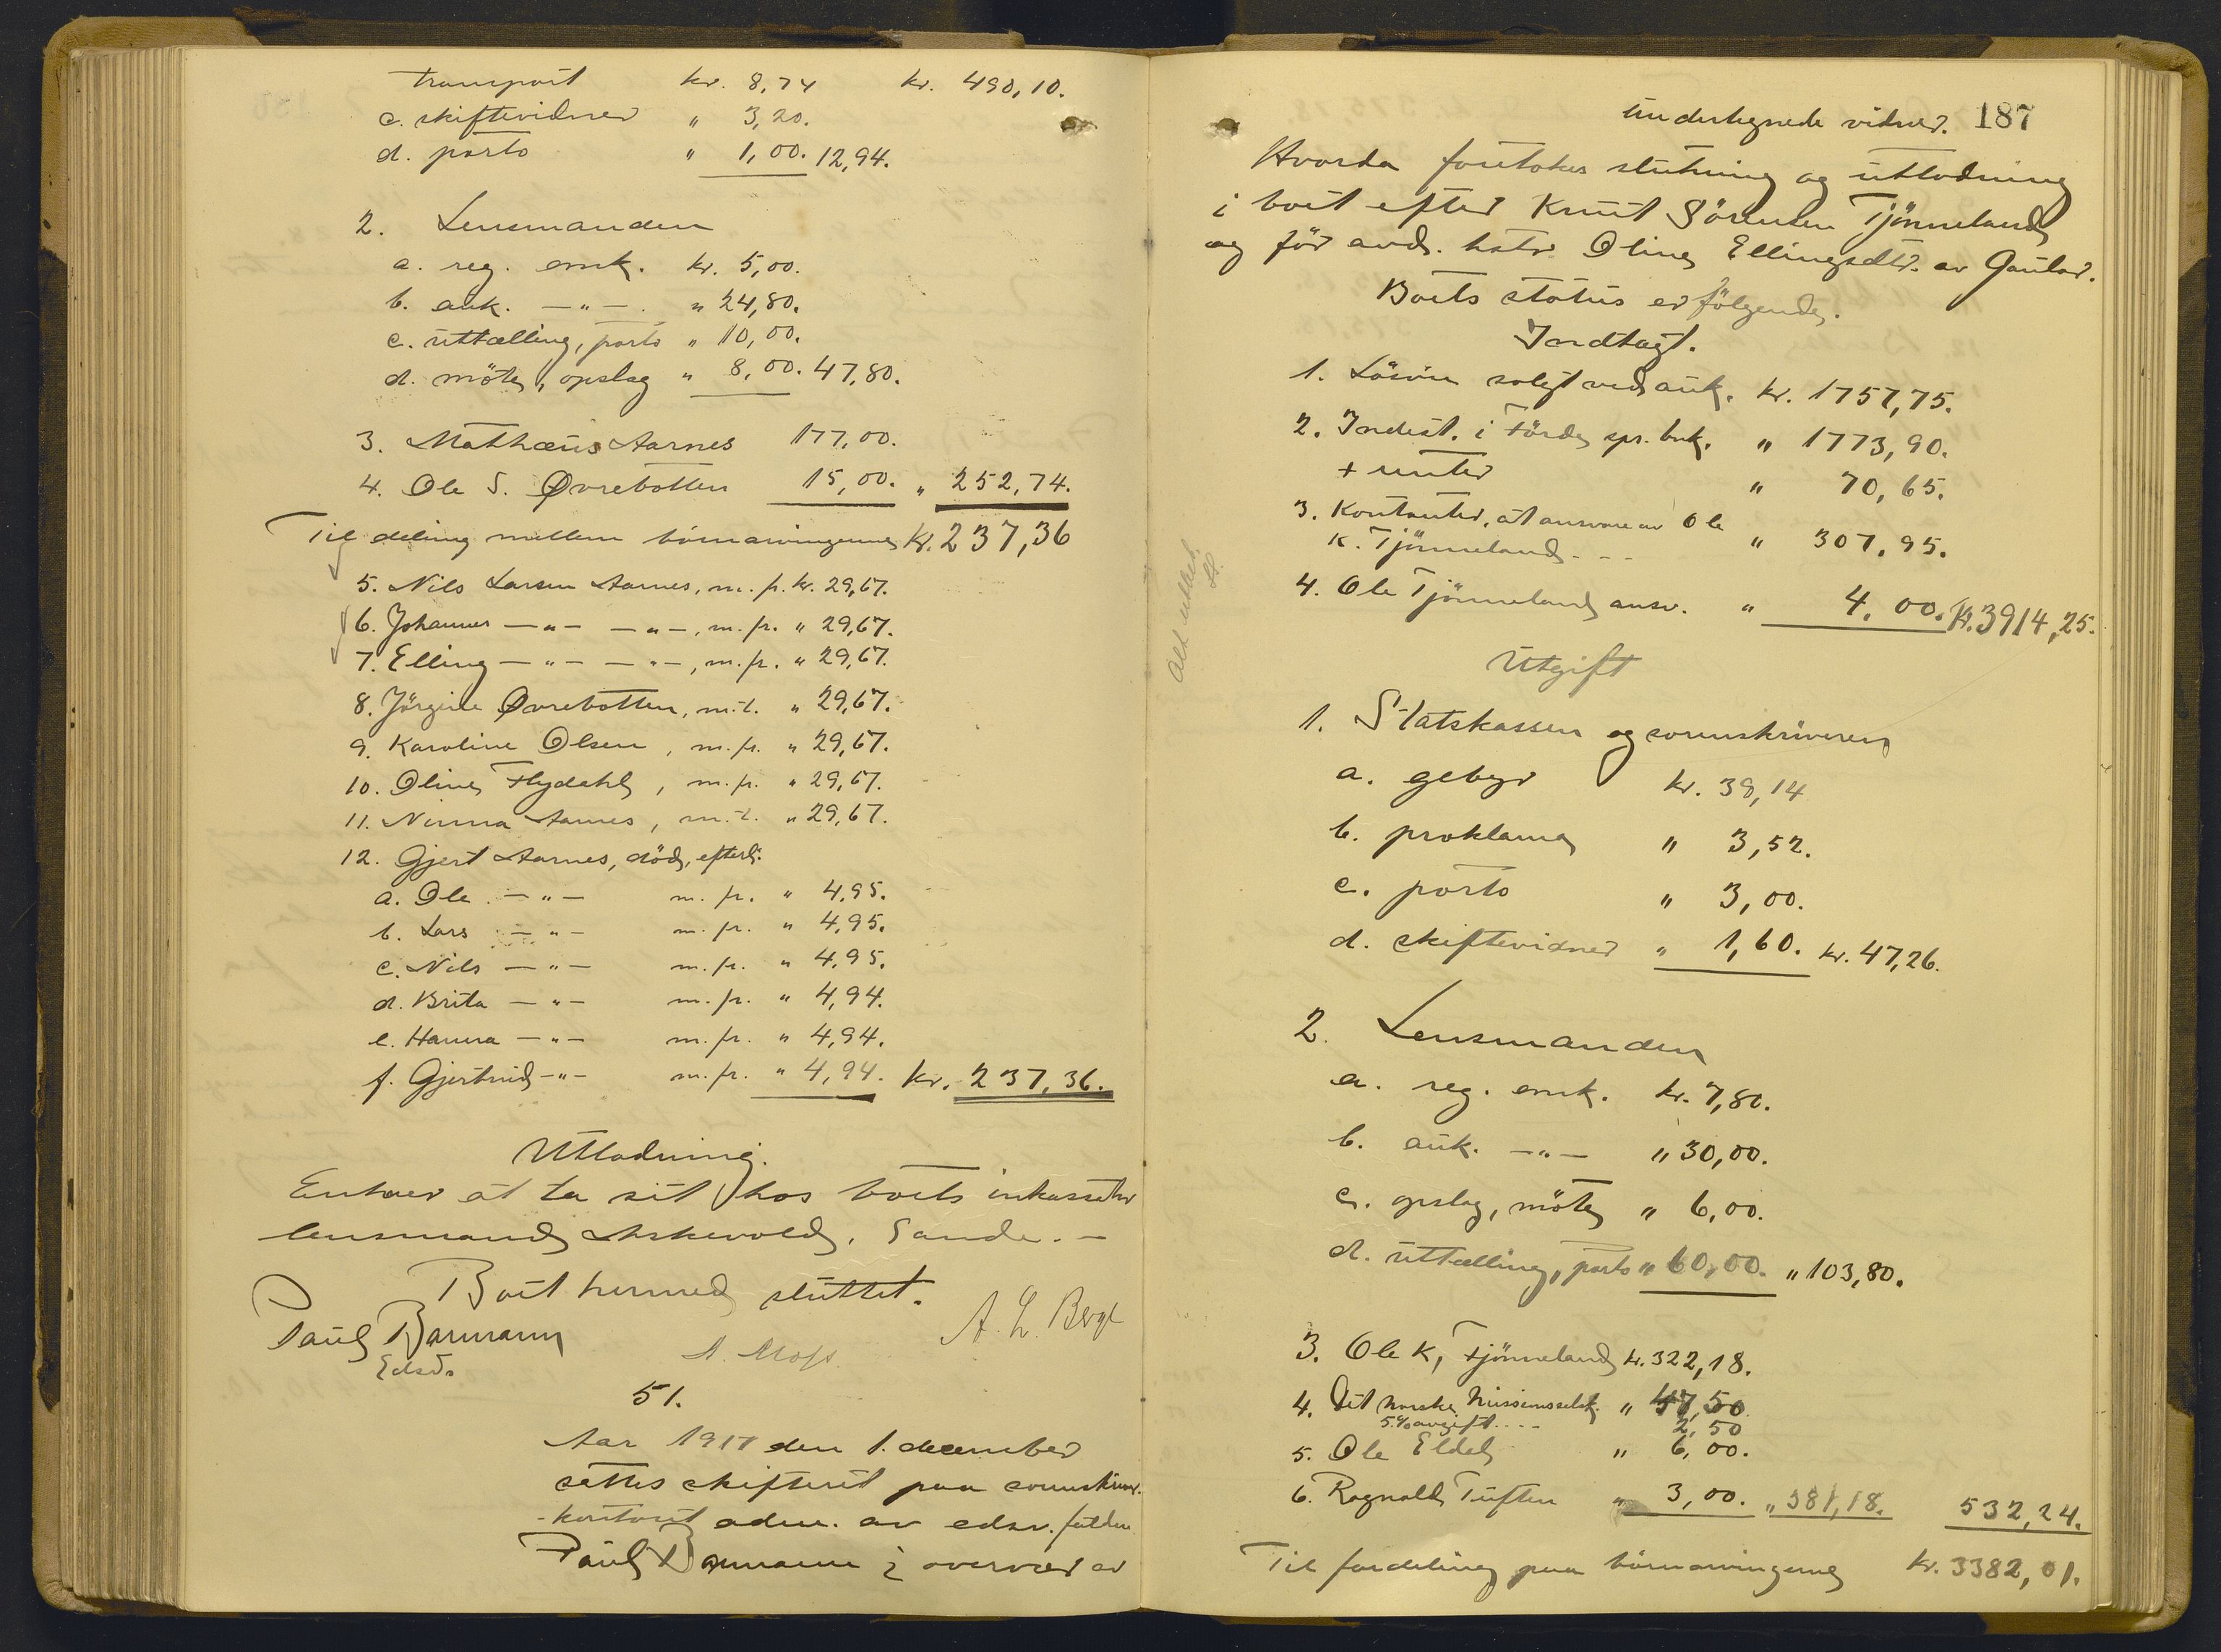 transport kr. 8,74 kr. 490,10.
c. skiftevidner " 3,20.
d. porto " 1,00. 12,94.
2. Lensmanden
a. reg. omk. kr. 5,00.
b. auk. —"— . " 24,80.
c. uttælling, porto " 10,00.
d. möte, opslag " 8,00. 47,80.
3. Mathæus Aarnes 177,00.
4. Ole S. Øvrebotten 15,00. " 252,74.
Til deling mellem bönarvingerne kr. 237,36
5. Nils Larsen Aarnes, m. fr. kr. 29,67.
6. Johannes —"— —"—, m. fr. " 29,67.
7. Elling —"— —"—, m. fr. " 29,67.
8. Jörgine Øvrebotten, m. t. " 29,67.
9. Karoline Olsen, m. fr. " 29,67.
10. Oline Flydahl, m. fr. " 29,67.
11. Ninna Aarnes, m. t. " 29,67.
12. Gjert Aarnes, död, efterl:
a. Ole —"— m. fr. " 4,95.
b. Lars —"— m. fr. " 4,95.
c. Nils —"— m. fr. " 4,95.
d. Brita —"— m. fr. " 4,94.
e. Hanna —"— m. fr. " 4,94.
f. Gjertrud —"— m. fr. " 4,94. kr. 237,36.
Utlodning.
Enhver at ta sit hos boets inkassator
lensmand Askevold, Sande. –
Boet hermed sluttet.
Paul Barmann
Edsv.
A. Moss
A. L. Berge
51.
Aar 1917 den 1. december
sattes skifteret paa sorenskriver-
kontoret adm. av edsv. fuldm.
Paul Barmann i overvær av
undertegnede vidner. 187
Hvorda foretokes slutning og utlodning
i boet efter Knut Sörensen Tjönneland
og för avd. hstr. Oline Ellingsdtr. av Gaular.
Boets status er fölgende.
Indtægt.
1. Lösöre solgt ved auk. kr. 1757,75.
2. Indest. i Förde spr. bnk. " 1773,90.
+ renter " 70,65.
3. Kontanter, at ansvare av Ole
K. Tjönneland - - - " 307,95.
4. Ole Tjönneland ansv. " 4,00. Kr. 3914,25.
Alt utbet.
Utgift
1. Statskassen og sorenskriveren
a. gebyr kr. 39,14
b. proklama " 3,52.
c. porto " 3,00.
d. skiftevidner " 1,60. kr. 47,26.
2. Lensmanden
a. reg. omk. kr. 7,80.
b. auk. —"— " 30,00.
c. opslag, möte " 6,00.
d. uttælling, porto " 60,00. " 103,80.
3. Ole K. Tjönneland kr. 322,18.
4. Det norske Missionsselsk. " 47,50
5% avgift - - - 2,50
5. Ole Eldal " 6,00.
6. Ragnald Tuften " 3,00. " 381,18. 532,24.
Til fordeling paa bönarvingerne kr. 3382,01.